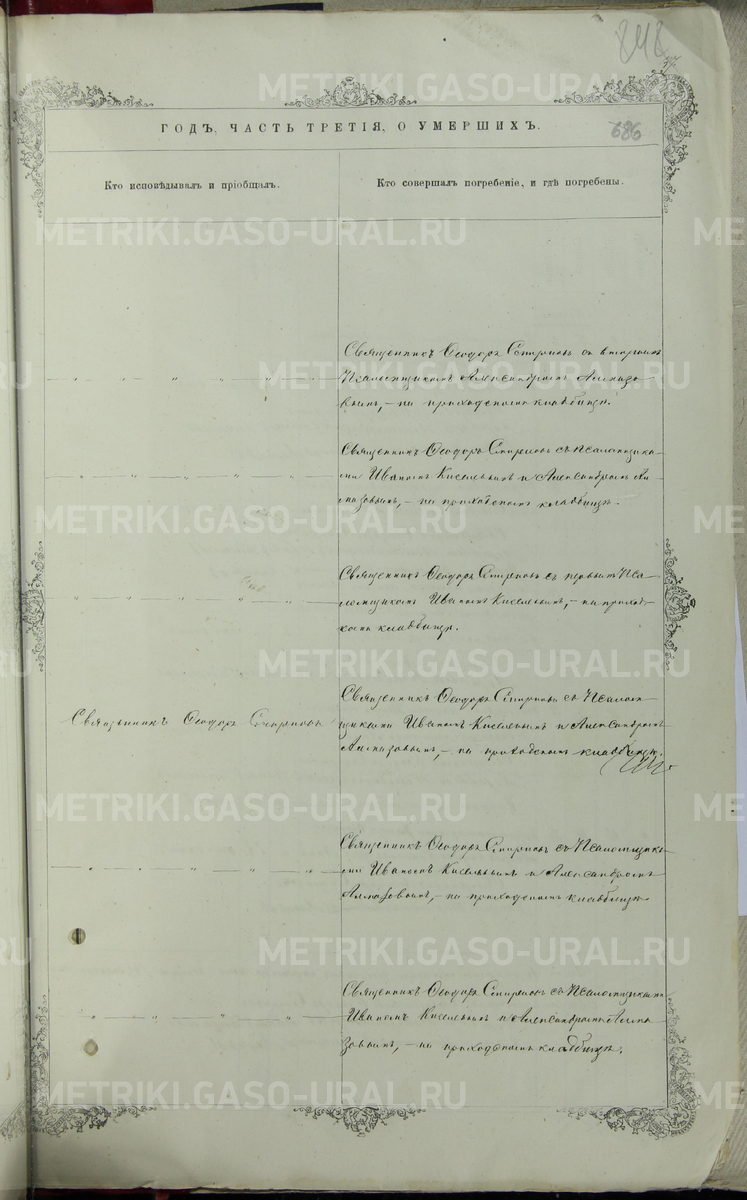 848
37
ГОДЪ, ЧАСТЬ ТРЕТІЯ, О УМЕРШИХЪ.
686
Кто исповѣдывалъ и пріобщалъ.
Кто совершалъ погребеніе, и гдѣ погребены.
Священникъ Ѳеодоръ Спиринъ со вторымъ
Псаломщикомъ Александромъ Алмазо-
вымъ, – на приходскомъ кладбищѣ.
Священникъ Ѳеодоръ Спиринъ съ псаломщика-
ми Иваномъ Киселевымъ и Александромъ Ал-
мазовымъ, – на приходскомъ кладбищѣ.
Священникъ Ѳеодоръ Спиринъ съ первымъ Пса-
ломщикомъ Иваномъ Киселевымъ, – на приход-
комъ кладбищѣ.
Священникъ Ѳеодоръ Спиринъ
Священникъ Ѳеодоръ Спиринъ съ Псалом-
щиками Иваномъ Киселевымъ и Александромъ
Алмазовымъ, – на приходскомъ кладбищѣ.
Священникъ Ѳеодоръ Спиринъ съ Псаломщика-
ми Иваномъ Киселевымъ и Александромъ
Алмазовымъ, – на приходскомъ кладбищѣ.
Священникъ Ѳеодоръ Спиринъ съ Псаломщиками
Иваномъ Киселевымъ и Александромъ Алма-
зовымъ, – на приходскомъ кладбищѣ.
METRIKI.GASO-URAL.RU